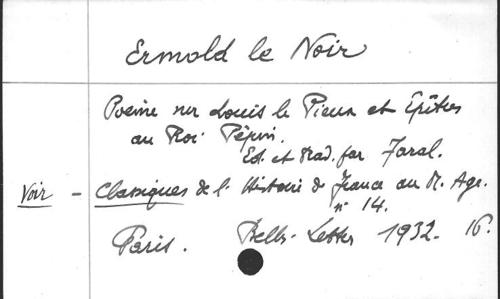 Ermold le Noir
Poème sur Louis le Pieux et Epîtres
au Roi Pépin.
Ed. et trad. par Faral.
Voir - Classiques de l'Histoire de France au M. Age.
n° 14.
Paris. Belles-Lettres 1932. 16.